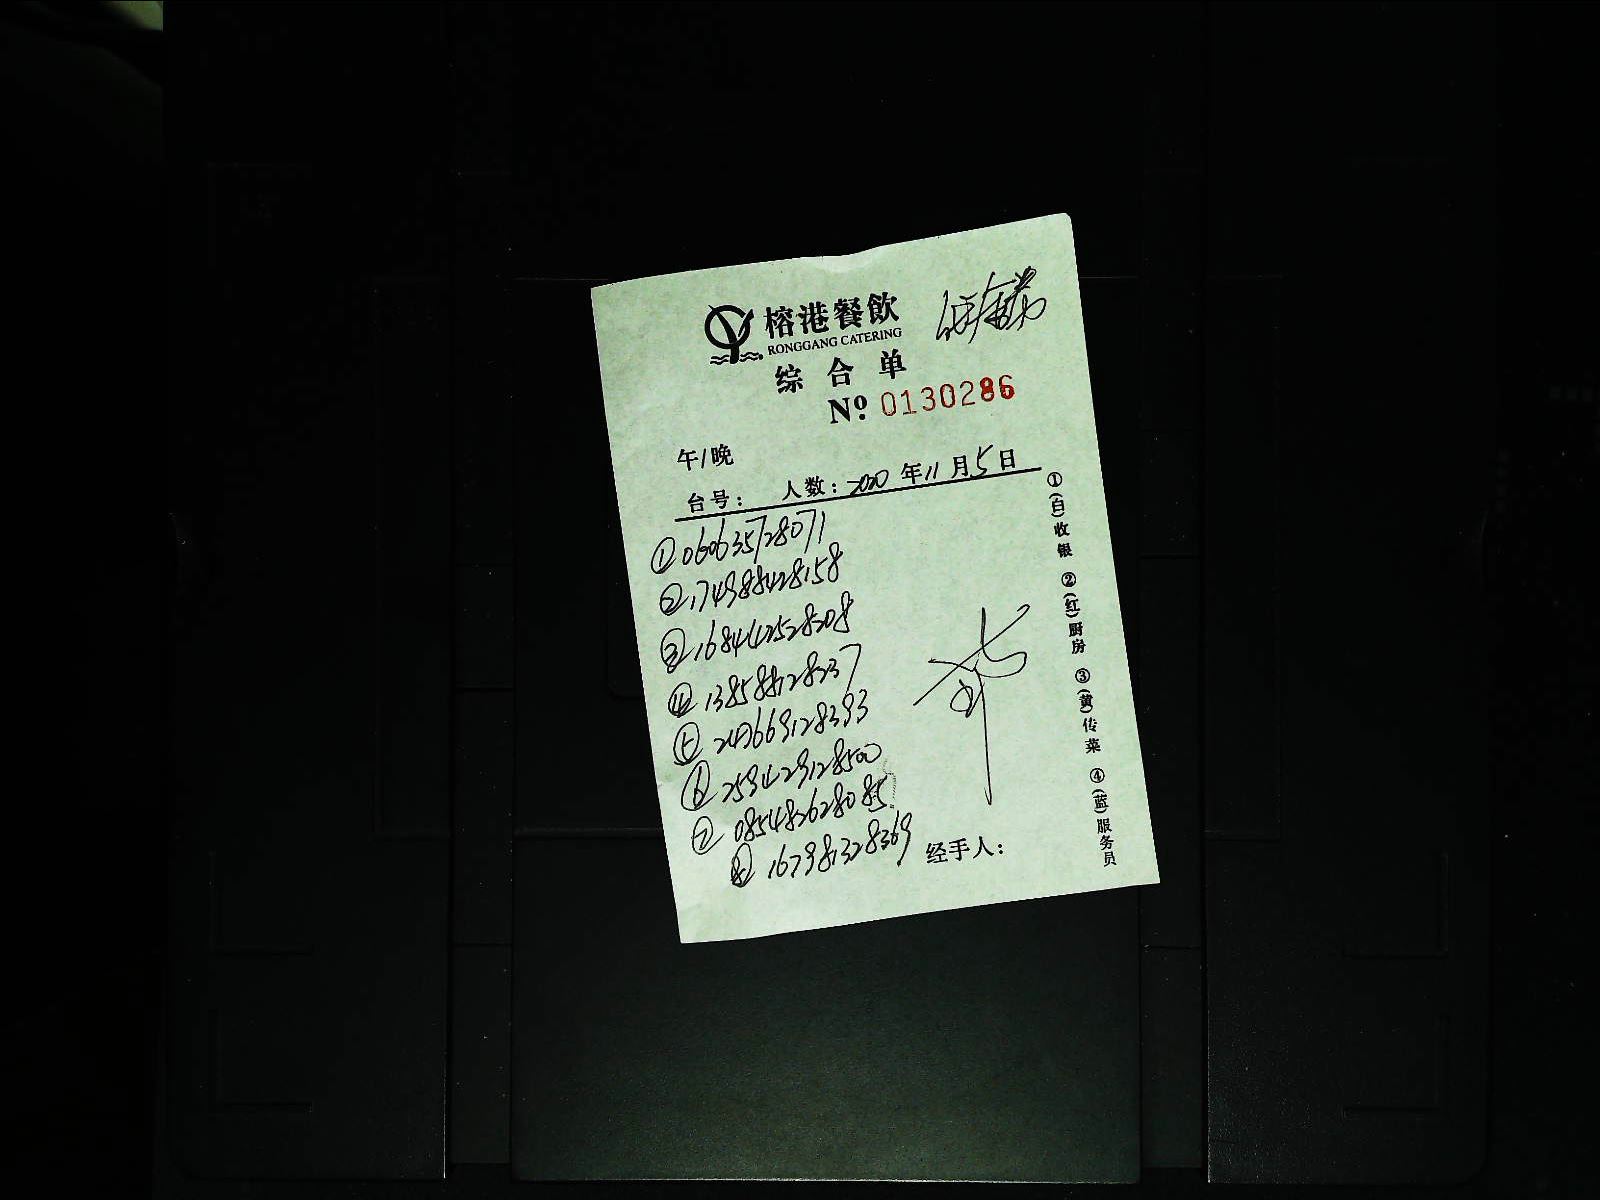 榕港餐飲
RONGGANG CATERING
综合单
Nº 0130286
午/晚
台号： 人数：2020 年11月5日
①060635728071
②174988428158
③168442528208
④138588128237
⑤247669128393
⑥259429128500
⑦085482628085
⑧167981328369
经手人：
①(白)收银 ②(红)厨房 ③(黄)传菜 ④(蓝)服务员